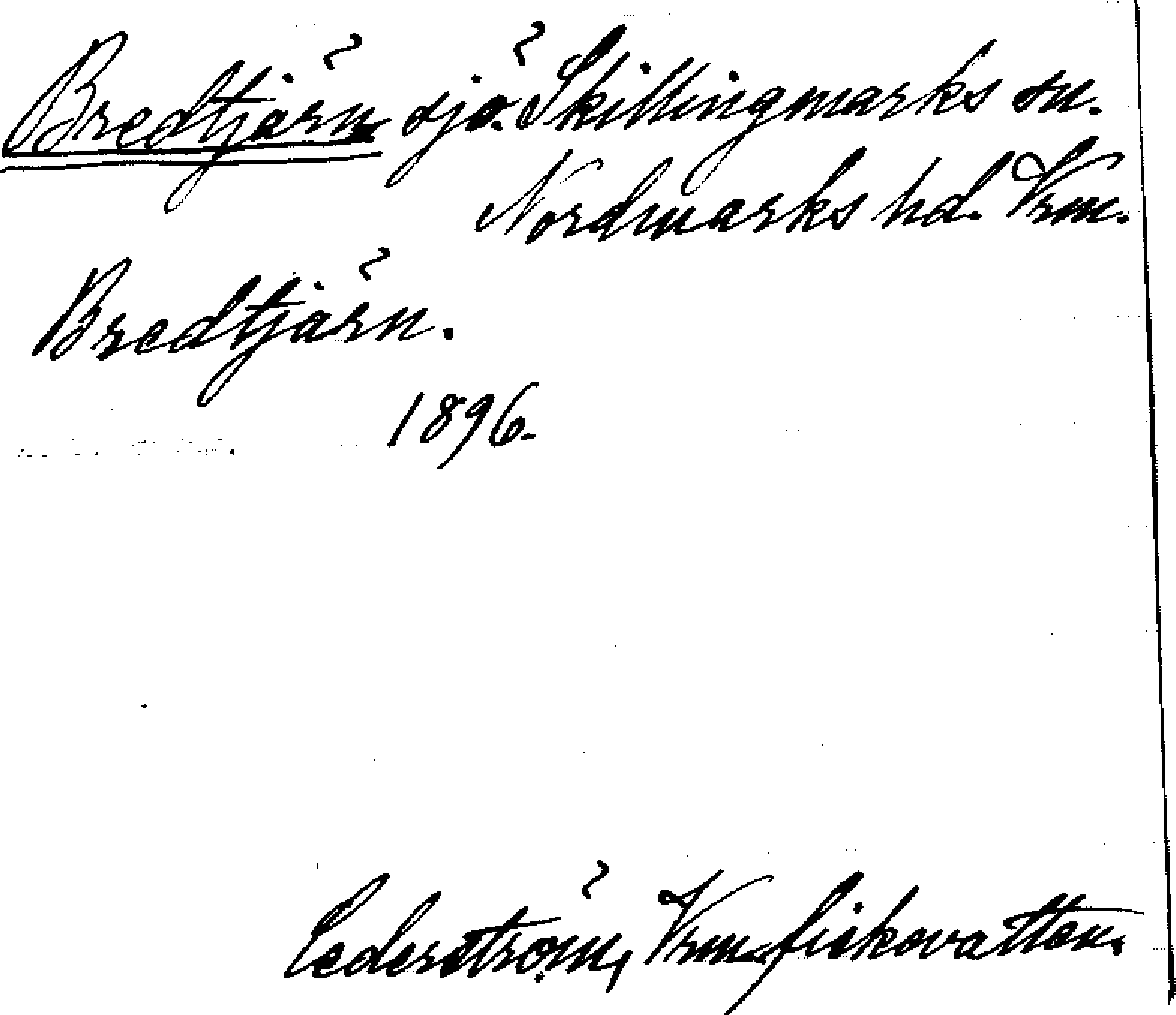 Bredtjärn sjö. Skillingmarks sn.
Nordmarks hd. Vrm.
Bredtjärn.
1896.
Cederström, Vrm. fiskevatten.